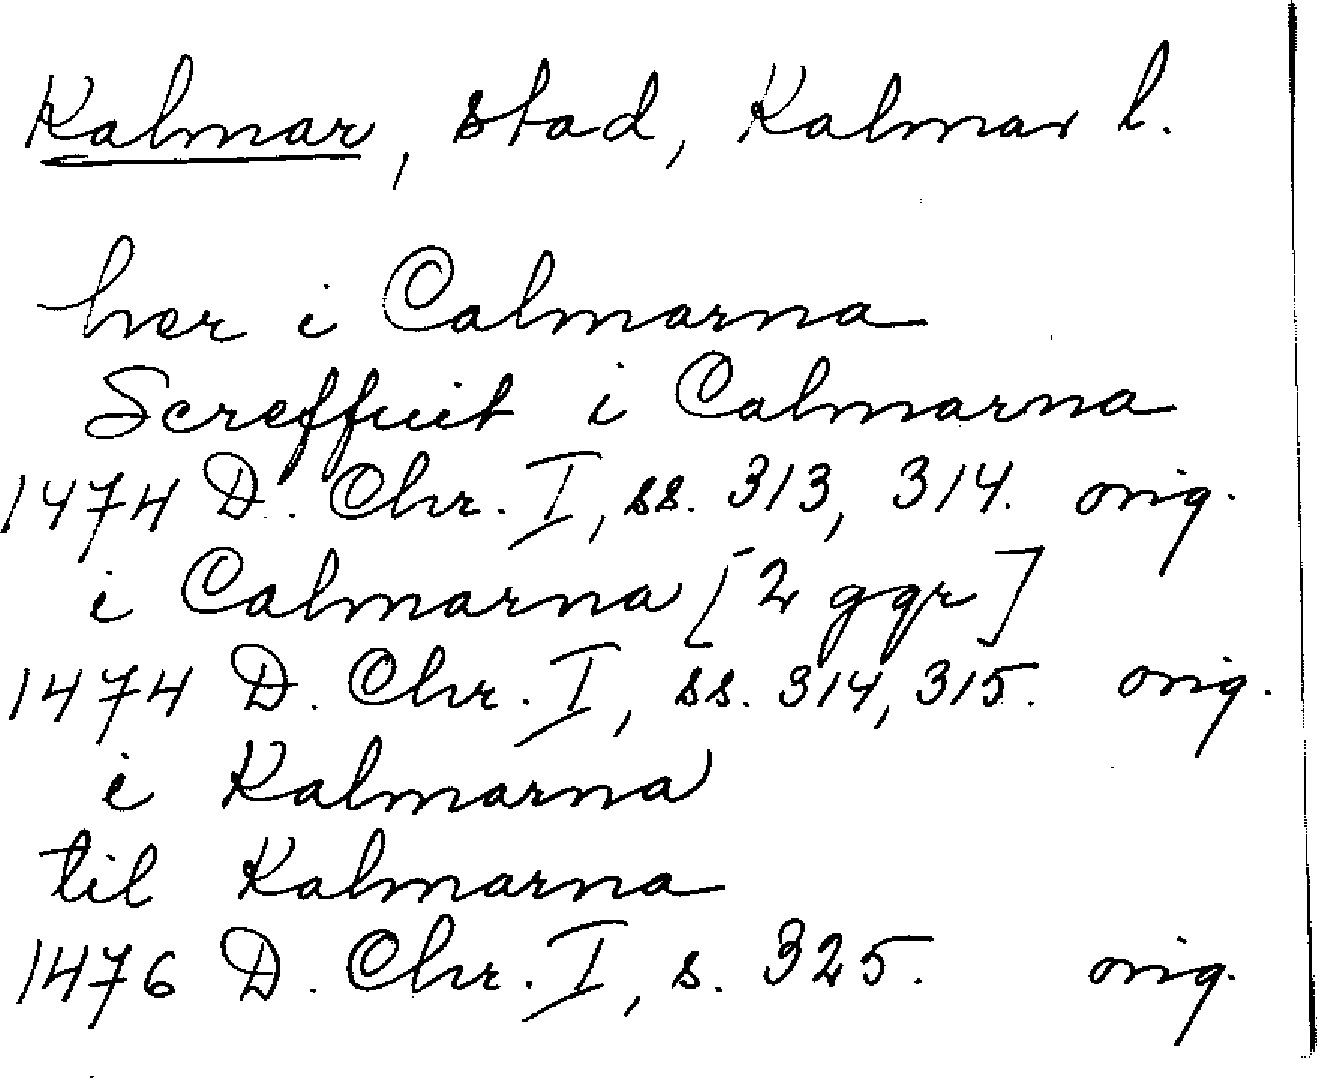 Kalmar, stad, Kalmar l.
hær i Calmarna
Screffuit i Calmarna
1474 D. Chr. I, ss. 313, 314. orig.
i Calmarna [2 ggr]
1474 D. Chr. I, ss. 314, 315. orig.
i Kalmarna
til Kalmarna
1476 D. Chr. I, s. 325. orig.